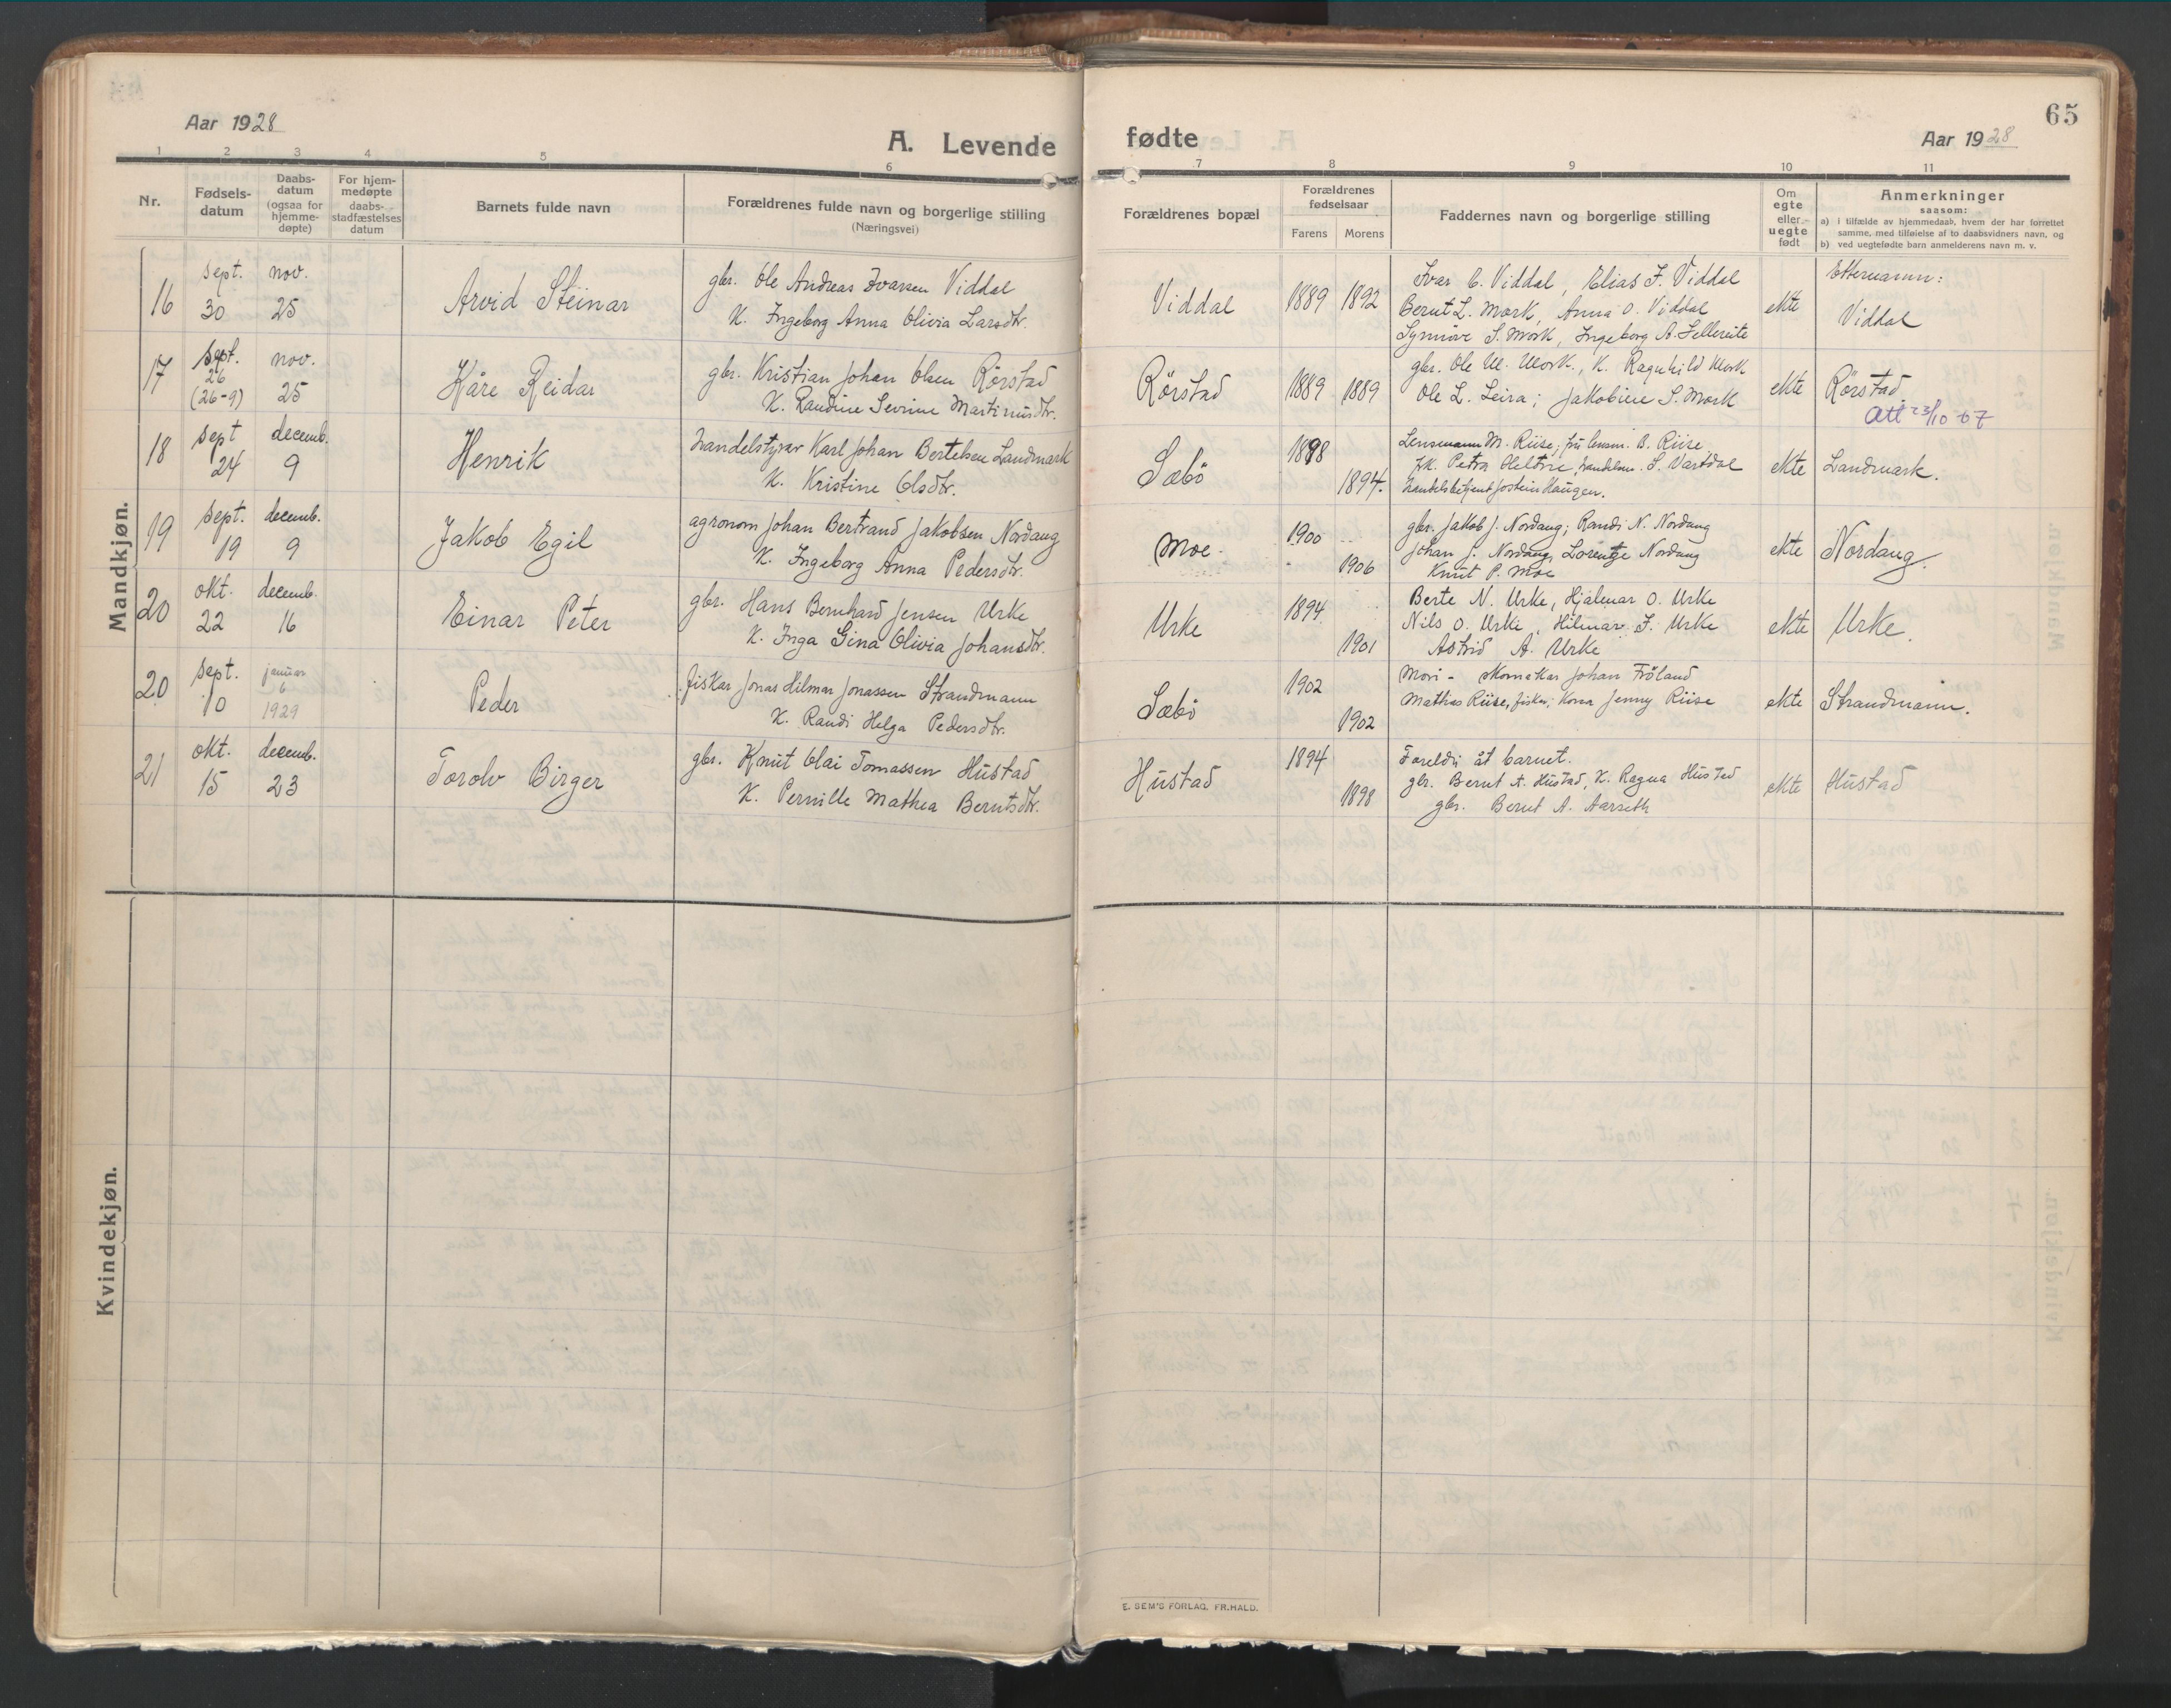 65
Aar 1928
A. Levende fødte
Aar 1928
1 2 3 4 5 6 7 8 9 10 11
Nr.
Fødsels-
datum
Daabs-
datum
(ogsaa for
hjemme-
døpte)
For hjem-
medøpte
daabs-
stadfæstelses
datum
Barnets fulde navn
Forældrenes fulde navn og borgerlige stilling
(Næringsvei)
Forældrenes bopæl
Forældrenes
fødselsaar
Farens Morens
Faddernes navn og borgerlige stilling
Om
egte
eller
uegte
født
Anmerkninger
saasom:
a) i tilfælde av hjemmedaab, hvem der har forrettet
samme, med tilføielse af to daabsvidners navn, og
b) ved uegtefødte barn anmelderens navn m. v.
Mandkjøn.
16
sept.
30
nov.
25
Arvid Steinar
gbr. Ole Andreas Ivarsen Viddal
K. Ingeborg Anna Olivia Larsdtr.
Viddal
1889 1892
Ivar C. Viddal, Elias J. Viddal
Bernt L. Mork, Anna O. Viddal
Synnöve S. Mork, Ingeborg A.
ekte
Etternamn:
Viddal
17
sept.
26
(26-9)
nov.
25
Kåre Reidar
gbr. Kristian Johan Olsen Rörstad
K. Randine Severine Martinusdtr.
Rörstad
1889 1889
gbr. Ole M. Mork., K. Ragnhild Mork
Ole L. Leira; Jakobine S. Mork
ekte
Rörstad.
Att 23/10-67
18
sept
24
decemb.
9
Henrik
handelstyrar Karl Johan Bertelsen Landmark
K. Kristine Olsdtr.
Sæbö
1898
1894.
Lensmann M. Riise; fru lensm. B. Riise
fk. Petra handelsm. S. Vartdal
handelsbetjent Jostein Haugen.
ekte
Landmark.
19
sept.
19
decemb.
9
Jakob Egil
agronom Johan Bertrand Jakobsen Nordang
K. Ingeborg Anna Pedersdtr.
Moe.
1900
1906
gbr. Jakob J. Nordang; Randi N. Nordang
Johan J. Nordang, Lorentze Nordang
Knut P. Moe
ekte
Nordang.
20
okt.
22
decemb.
16
Einar Peter
gbr. Hans Bernhard Jensen Urke
K. Inga Gina Olivia Johansdtr.
Urke
1894
1901
Berte N. Urke, Hjalmar O. Urke
Nils O. Urke, Hilmar J. Urke
Astrid A. Urke
ekte
Urke.
20
sept.
10
januar
6
1929
Peder
fiskar Jonas Hilmar Jonassen Strandmann
K. Randi Helga Pedersdtr.
Sæbö
1902
1902
Mori - skomakar Johan Fröland
Mathias Riise, fisker; Kona Jenny Riise
ekte
Strandmann.
21
okt.
15
decemb.
23
Torolv Birger
gbr. Knut Olai Tomassen Hustad
K. Pernille Mathea Berntsdtr.
Hustad
1894
1898
Foreldri åt barnet.
gbr. Bernt A. Hustad, K. Ragna Hustad
gbr. Bernt A. Aarseth
ekte
Hustad
Kvindekjøn.
E. SEM'S FORLAG, FR.HALD.